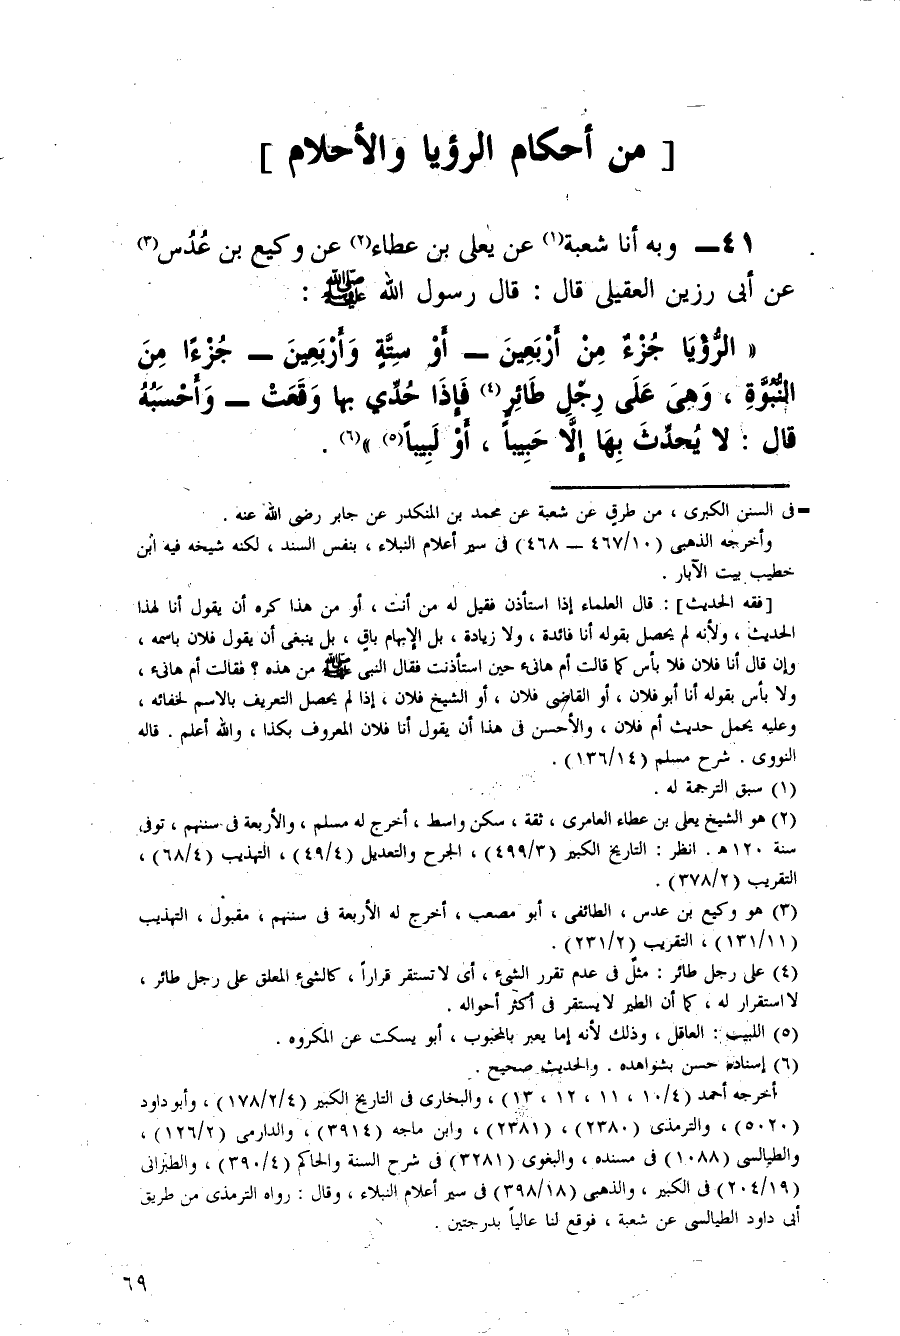 [ من أحكام الرؤيا والأحلام ]
٤١ــ وبه أنا شعبة(١) عن يعلى بن عطاء(٢) عن وكيع بن عُدُس(٣)
عن أبى رزين العقيلى قال : قال رسول الله ﷺ :
« الرُّؤْيَا جُزْءٌ مِنْ أَرْبَعِينَ ــ أَوْ سِتَّةٍ وَأَرْبَعِينَ ــ جُزْءًا مِنَ
النُّبُوَّةِ ، وَهِىَ عَلَى رِجْلِ طَائِرٍ(٤) فَإِذَا حُدِّي بها وَقَعَتْ ــ وَأَحْسَبُهُ
قال : لا يُحدِّثَ بِهَا إِلَّا حَبِيباً ، أَوْ لَبِيباً(٥) »(٦) .
= فى السنن الكبرى ، من طرقٍ عن شعبة عن محمد بن المنكدر عن جابر رضى الله عنه .
وأخرجه الذهبى (٤٦٧/١٠ ــ ٤٦٨) فى سير أعلام النبلاء ، بنفس السند ، لكنه شيخه فيه ابن
خطيب بيت الآبار .
[فقه الحديث] : قال العلماء إذا استأذن فقيل له من أنت ، أو من هذا كره أن يقول أنا لهذا
الحديث ، ولأنه لم يحصل بقوله أنا فائدة ، ولا زيادة ، بل الإبهام باقٍ ، بل ينبغى أن يقول فلان باسمه ،
وإن قال أنا فلان فلا بأس كما قالت أم هانىء حين استأذنت فقال النبى ﷺ من هذه ؟ فقالت أم هانىء ،
ولا بأس بقوله أنا أبو فلان ، أو القاضى فلان ، أو الشيخ فلان ، إذا لم يحصل التعريف بالاسم لخفائه ،
وعليه يحمل حديث أم فلان ، والأحسن فى هذا أن يقول أنا فلان المعروف بكذا ، والله أعلم . قاله
النووى . شرح مسلم (١٣٦/١٤) .
(١) سبق الترجمة له .
(٢) هو الشيخ يعلى بن عطاء العامرى ، ثقة ، سكن واسط ، أخرج له مسلم ، والأربعة فى سننهم ، توفى
سنة ١٢٠ هـ . انظر : التاريخ الكبير (٤٩٩/٣) ، الجرح والتعديل (٤٩/٤) ، التهذيب (٦٨/٤) ،
التقريب (٣٧٨/٢) .
(٣) هو وكيع بن عدس ، الطائفى ، أبو مصعب ، أخرج له الأربعة فى سننهم ، مقبول ، التهذيب
(١٣١/١١) ، التقريب (٢٣١/٢) .
(٤) على رجل طائر : مثلٌ فى عدم تقرر الشىء ، أى لا تستقر قراراً ، كالشىء المعلق على رجل طائر ،
لا استقرار له ، كما أن الطير لا يستقر فى أكثر أحواله .
(٥) اللبيب : العاقل ، وذلك لأنه إما يعبر بالمحبوب ، أبو يسكت عن المكروه .
(٦) إسناده حسن بشواهده . والحديث صحيح .
أخرجه أحمد (١٠/٤ ، ١١ ، ١٢ ، ١٣) ، والبخارى فى التاريخ الكبير (١٧٨/٢/٤) ، وأبو داود
(٥٠٢٠) ، والترمذى (٢٣٨٠) ، (٢٣٨١) ، وابن ماجه (٣٩١٤) ، والدارمى (١٢٦/٢) ،
والطيالسى (١٠٨٨) فى مسنده ، والبغوى (٣٢٨١) فى شرح السنة والحاكم (٣٩٠/٤) ، والطبرانى
(٢٠٤/١٩) فى الكبير ، والذهبى (٣٩٨/١٨) فى سير أعلام النبلاء ، وقال : رواه الترمذى من طريق
أبى داود الطيالسى عن شعبة ، فوقع لنا عالياً بدرجتين .
٦٩